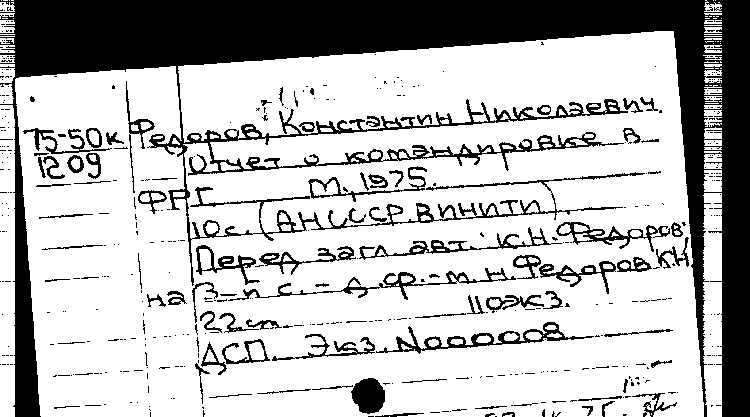 75-50к Федоров, Константин Николаевич.
1209 Отчет о командировке в
ФРГ М., 1975.
10с. (АН СССР. ВИНИТИ).
Перед загл. авт.: К.Н. Федоров.
на 3-й с. - д.ф.-м.н. Федоров К.Н.
22см. 110экз.
ДСП. Экз. N000008.